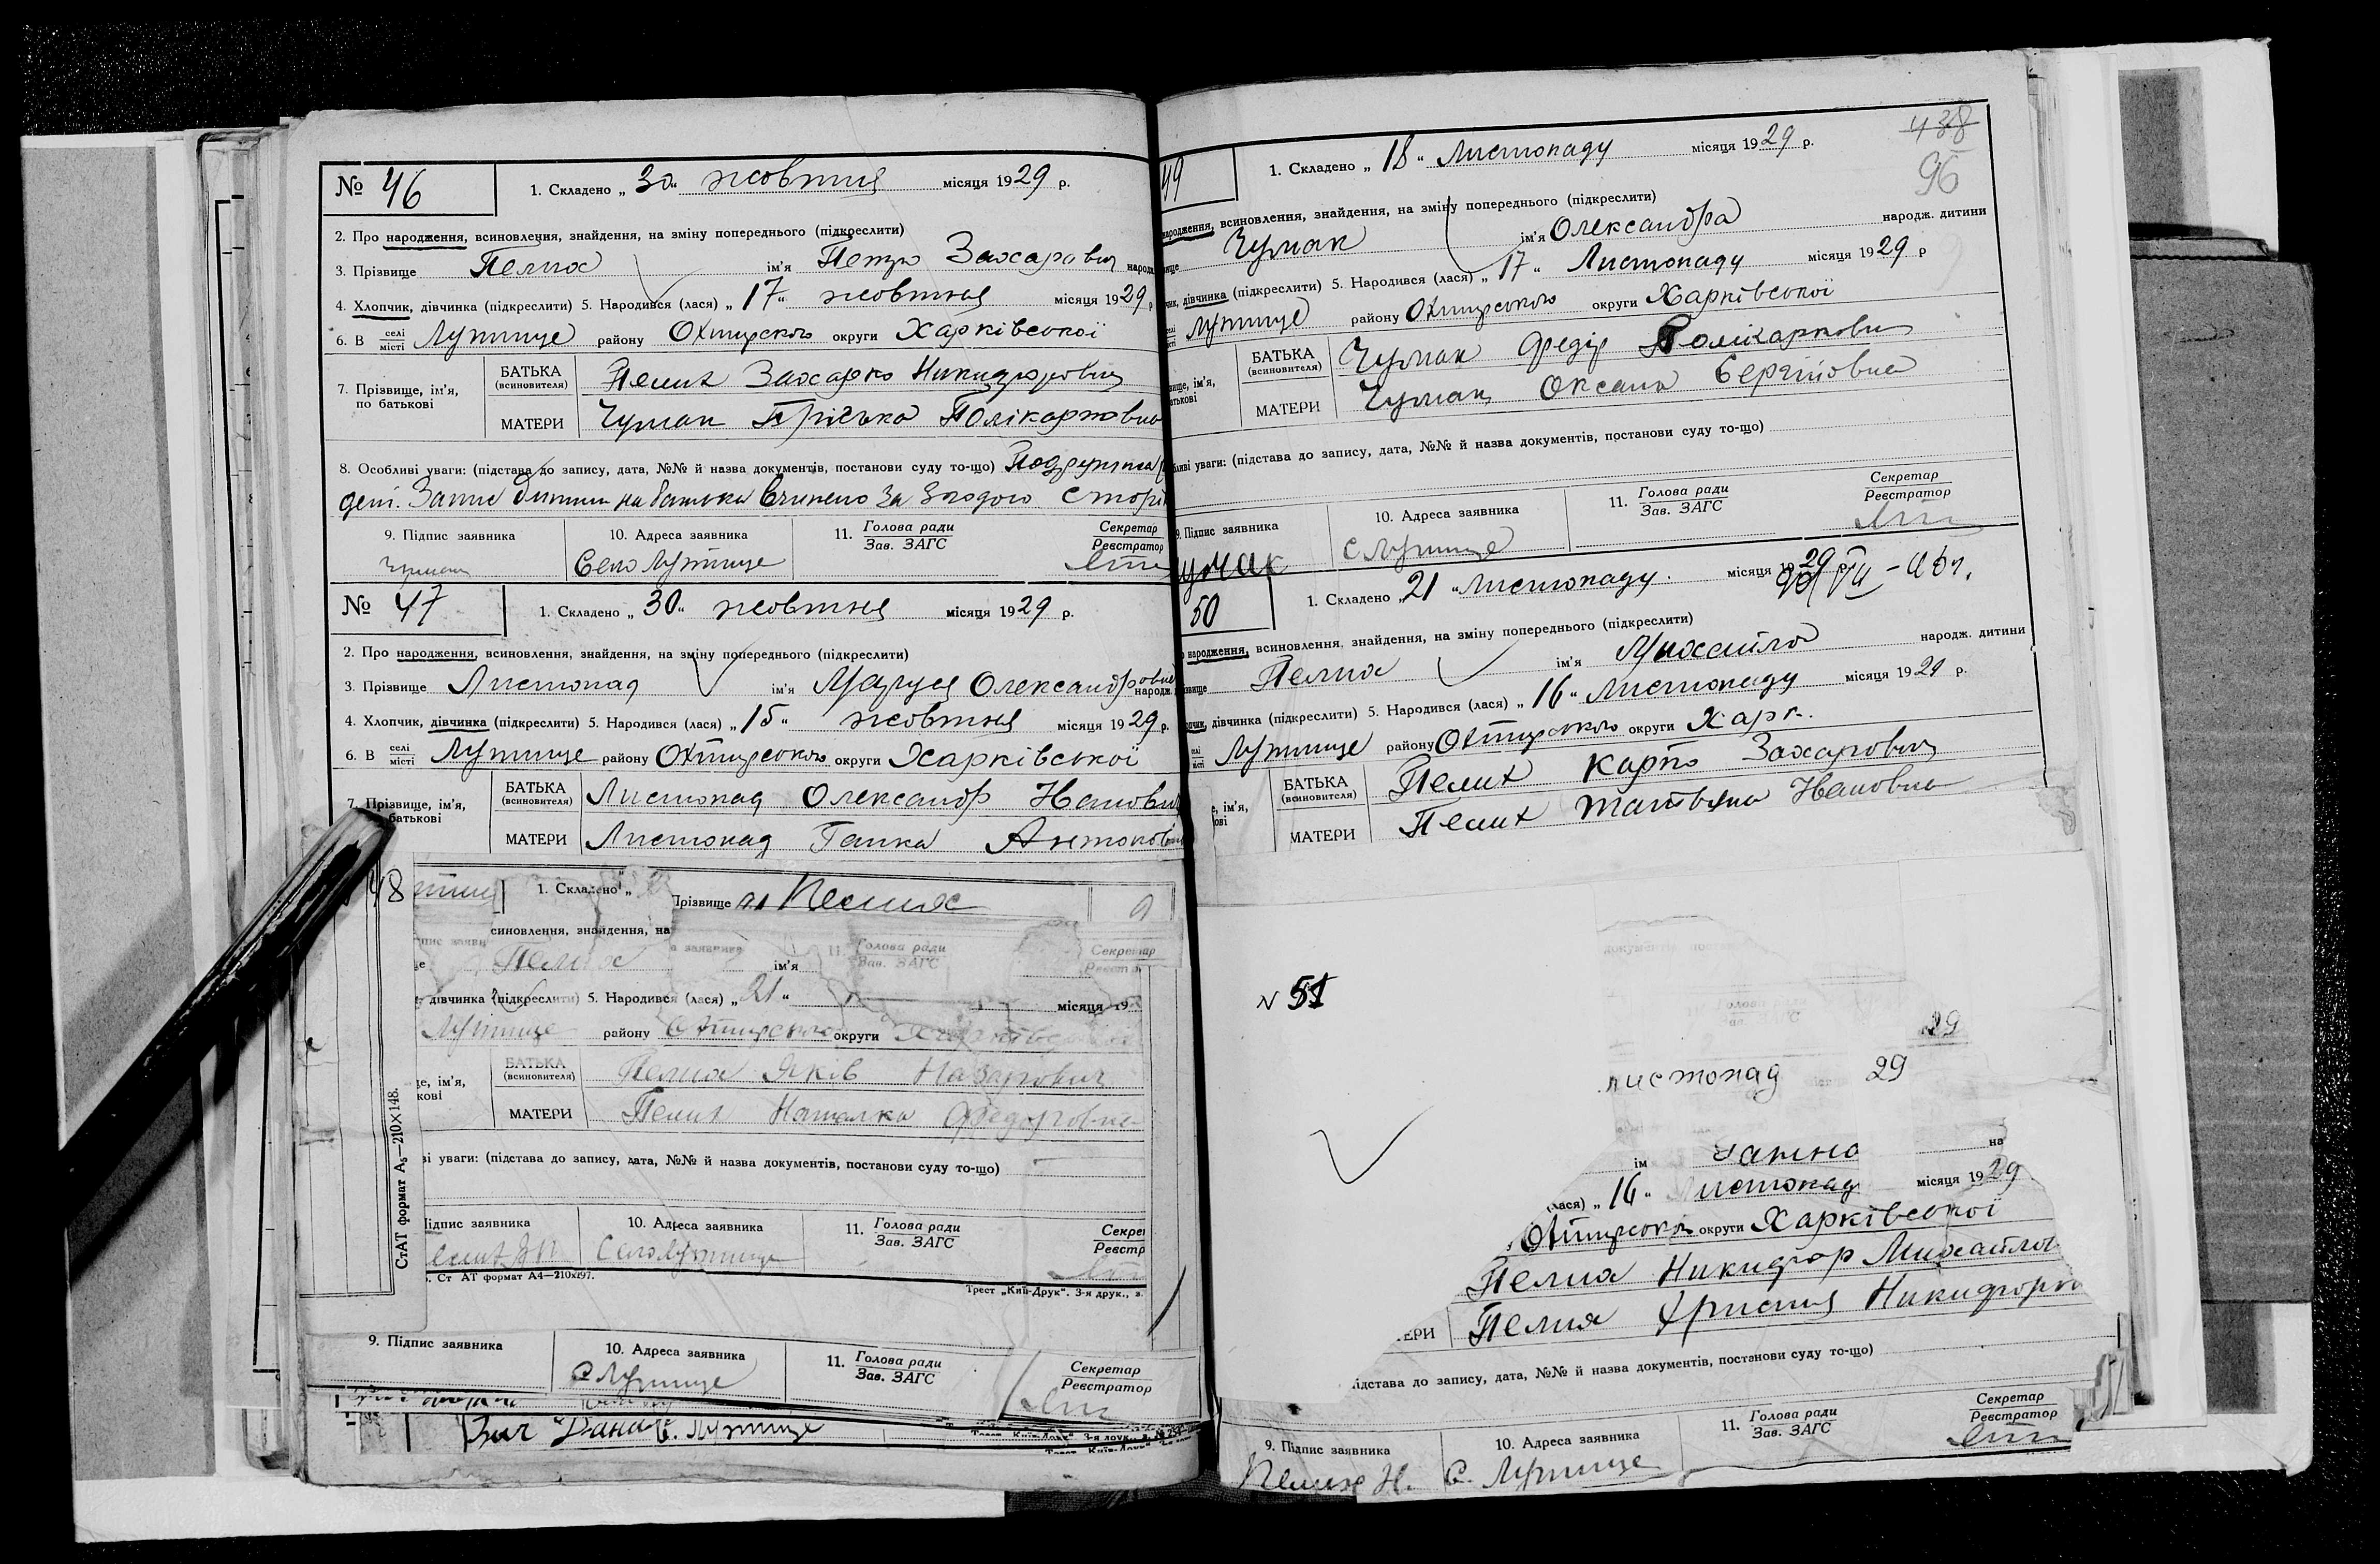 № 46
1. Складено „ 30 “ жовтня місяця 1929 р.
2. Про народження, всиновлення, знайдення, на зміну попереднього (підкреслити)
3. Прізвище Пелих ім'я Петро Захарович народж.
4. Хлопчик, дівчинка (підкреслити) 5. Народився (лася) „ 17 “ жовтня місяця 1929 р
6. В селі місті Лутище району Охтирского округи Харківської
7. Прізвище, ім'я, по батькові
БАТЬКА (всиновителя) Пелих Захарко Никифорович
МАТЕРИ Чумак Пріська Полікарповна
8. Особливі уваги: (підстава до запису, дата, №№ й назва документів, постанови суду то-що)
дет. Запис дитини на батька вчинено за згодою сторін
9. Підпис заявника
10. Адреса заявника
11. Голова ради Зав. ЗАГС
Секретар Реєстратор
Чумак Село Лутище
№ 47
1. Складено „ 30 “ жовтня місяця 1929 р.
2. Про народження, всиновлення, знайдення, на зміну попереднього (підкреслити)
3. Прізвище Листопад ім'я Маруся Олександровна народж.
4. Хлопчик, дівчинка (підкреслити) 5. Народився (лася) „ 15 “ жовтня місяця 1929 р.
6. В селі місті Лутище району Охтирського округи Харківської
7. Прізвище, ім'я, батькові
БАТЬКА (всиновителя) Листопад Олександр Іванович
МАТЕРИ Листопад Ганна Антоновна
48
1. Складено „
Прізвище Пелих
9
синовлення, знайдення, на
Голова ради Зав. ЗАГС
Секретар
Пелих ім'я
дівчинка (підкреслити) 5. Народився (лася) „ 21 “ місяця 19
Лутище району Охтирського округи Харківської
це, ім'я, кові
БАТЬКА (всиновителя) Пелих Яків Назарович
МАТЕРИ Пелих Наталка Федоровна
ві уваги: (підстава до запису, дата, №№ й назва документів, постанови суду то-що)
Підпис заявника
10. Адреса заявника
11. Голова ради Зав. ЗАГС
Секре Реєстр
Село Лутище
Ст АТ формат А4—210х297.
Трест „Київ-Друк“. 3-я друк., з.
СтАТ формат А5—210×148.
9. Підпис заявника
10. Адреса заявника
11. Голова ради Зав. ЗАГС
Секретар Реєстратор
С Лутище
с. Лутище
438
96
49
1. Складено „ 18 “ Листопаду місяця 1929 р.
народження, всиновлення, знайдення, на зміну попереднього (підкреслити)
вище Чумак ім'я Олександра народж. дитини
чик, дівчинка (підкреслити) 5. Народився (лася) „ 17 “ Листопаду місяця 1929 р
Лутище району Охтирського округи Харківської
вище, ім'я, батькові
БАТЬКА (всиновителя) Чумак Федір Полікарпович
МАТЕРИ Чумак Оксана Сергіївна
бливі уваги: (підстава до запису, дата, №№ й назва документів, постанови суду то-що)
9. Підпис заявника
10. Адреса заявника
11. Голова ради Зав. ЗАГС
Секретар Реєстратор
умак С Лутище
50
1. Складено „ 21 “ Листопаду місяця 1929
народження, всиновлення, знайдення, на зміну попереднього (підкреслити)
звище Пелих ім'я Михайло народж. дитини
опчик, дівчинка (підкреслити) 5. Народився (лася) „ 16 “ Листопаду місяця 1929 р.
Лутище району Охтирського округи Харк.
е, ім'я, ові
БАТЬКА (всиновителя) Пелих Карпо Захарович
МАТЕРИ Пелих Татьяна Івановна
N 51
29
листопад 29
ім Ганна на
(лася) „ 16 “ Листопад місяця 1929
Охтирсько округи Харківської
Пелих Никифор Михайлов
ТЕРИ Пелих Христия Никифоро
ідстава до запису, дата, №№ й назва документів, постанови суду то-що)
9. Підпис заявника
10. Адреса заявника
11. Голова ради Зав. ЗАГС
Секретар Реєстратор
Пелих Н. С. Лутище